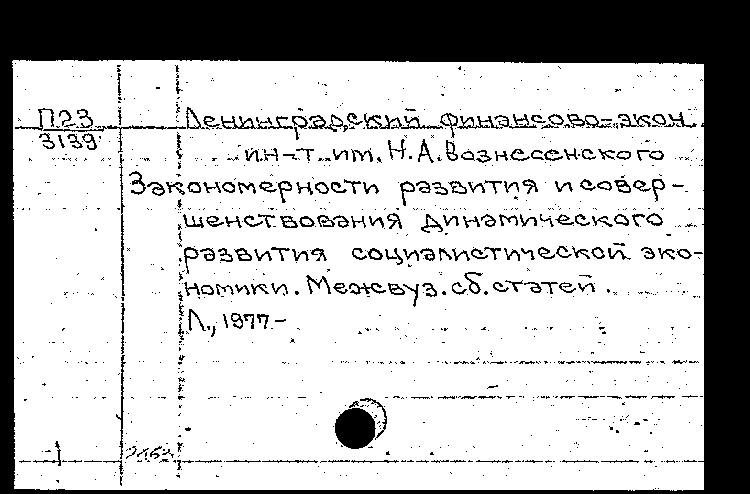 П23 Ленинградский финансово-экон
3139
ин-т им. Н.А. Вознесенского
Закономерности развития и совер-
шенствования динамического
развития социалистической эко-
номики. Межвуз. сб. статей.
Л., 1977-